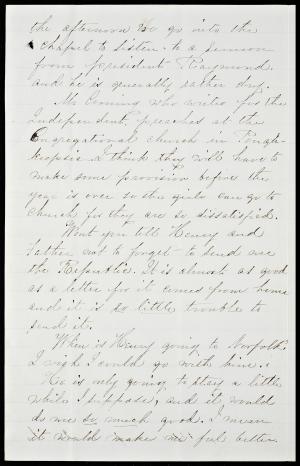 the afternoon we go into the
Chapel to listen to a sermon
from President Raymond
and he is generally rather dry.
Mr Corning who writes for the
Independent, preaches at the
Congregational church in Pough-
keepsie. I think they will have to
make some provision before the
year is over so the girls can go to
church for they are so dissatisfied.
Wont you tell Henry and
Father not to forget to send me
the Republic. It is almost as good
as a letter for it comes from home
and it is so little trouble to
send it.
When is Henry going to Norfolk.
I wish I could go with him.
He is only going to stay a little
while I suppose, and it would
do me so much good. I mean
it would make me feel better